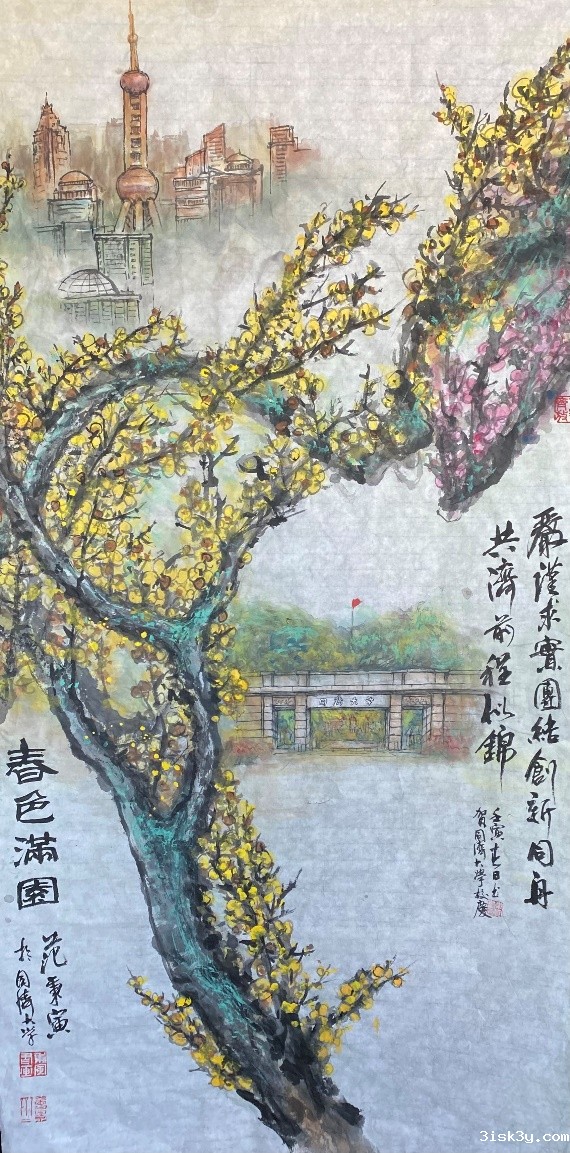 嚴謹求實團結創新同舟
共濟前程似錦
壬寅春日書
賀同濟大學校慶
同濟大學
春色滿園
范秉寅
於同濟大学
3isk3y.com